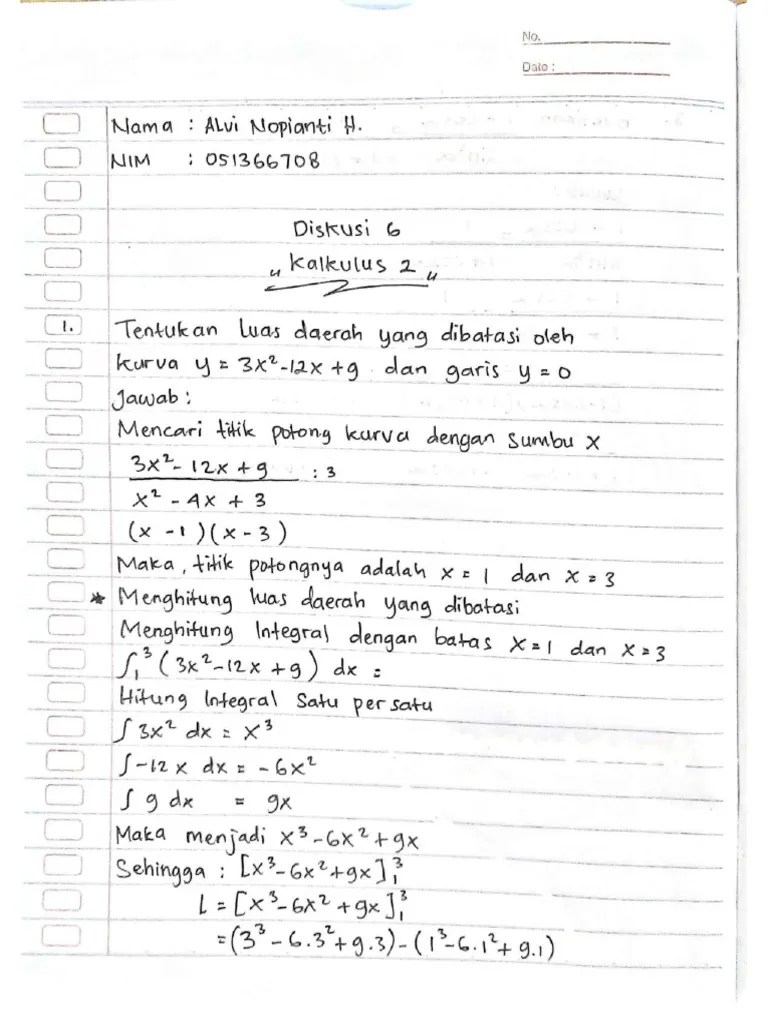 No.
Date :
Nama : ALvi Nopianti H.
NIM : 051366708
Diskusi 6
"Kalkulus 2"
1. Tentukan luas daerah yang dibatasi oleh
kurva y = 3x²-12x+9 dan garis y = 0
Jawab :
Mencari titik potong kurva dengan sumbu X
3x² - 12x + 9 : 3
x² - 4x + 3
(x - 1)(x - 3)
Maka, titik potongnya adalah x = 1 dan x = 3
* Menghitung luas daerah yang dibatasi
Menghitung Integral dengan batas x=1 dan x=3
∫₁³ (3x²-12x+9) dx =
Hitung Integral Satu persatu
∫ 3x² dx = x³
∫-12x dx = -6x²
∫ 9 dx = 9x
Maka menjadi x³-6x²+9x
Sehingga : [x³-6x²+9x]₁³
L = [x³-6x²+9x]₁³
=(3³-6.3²+9.3)-(1³-6.1²+9.1)